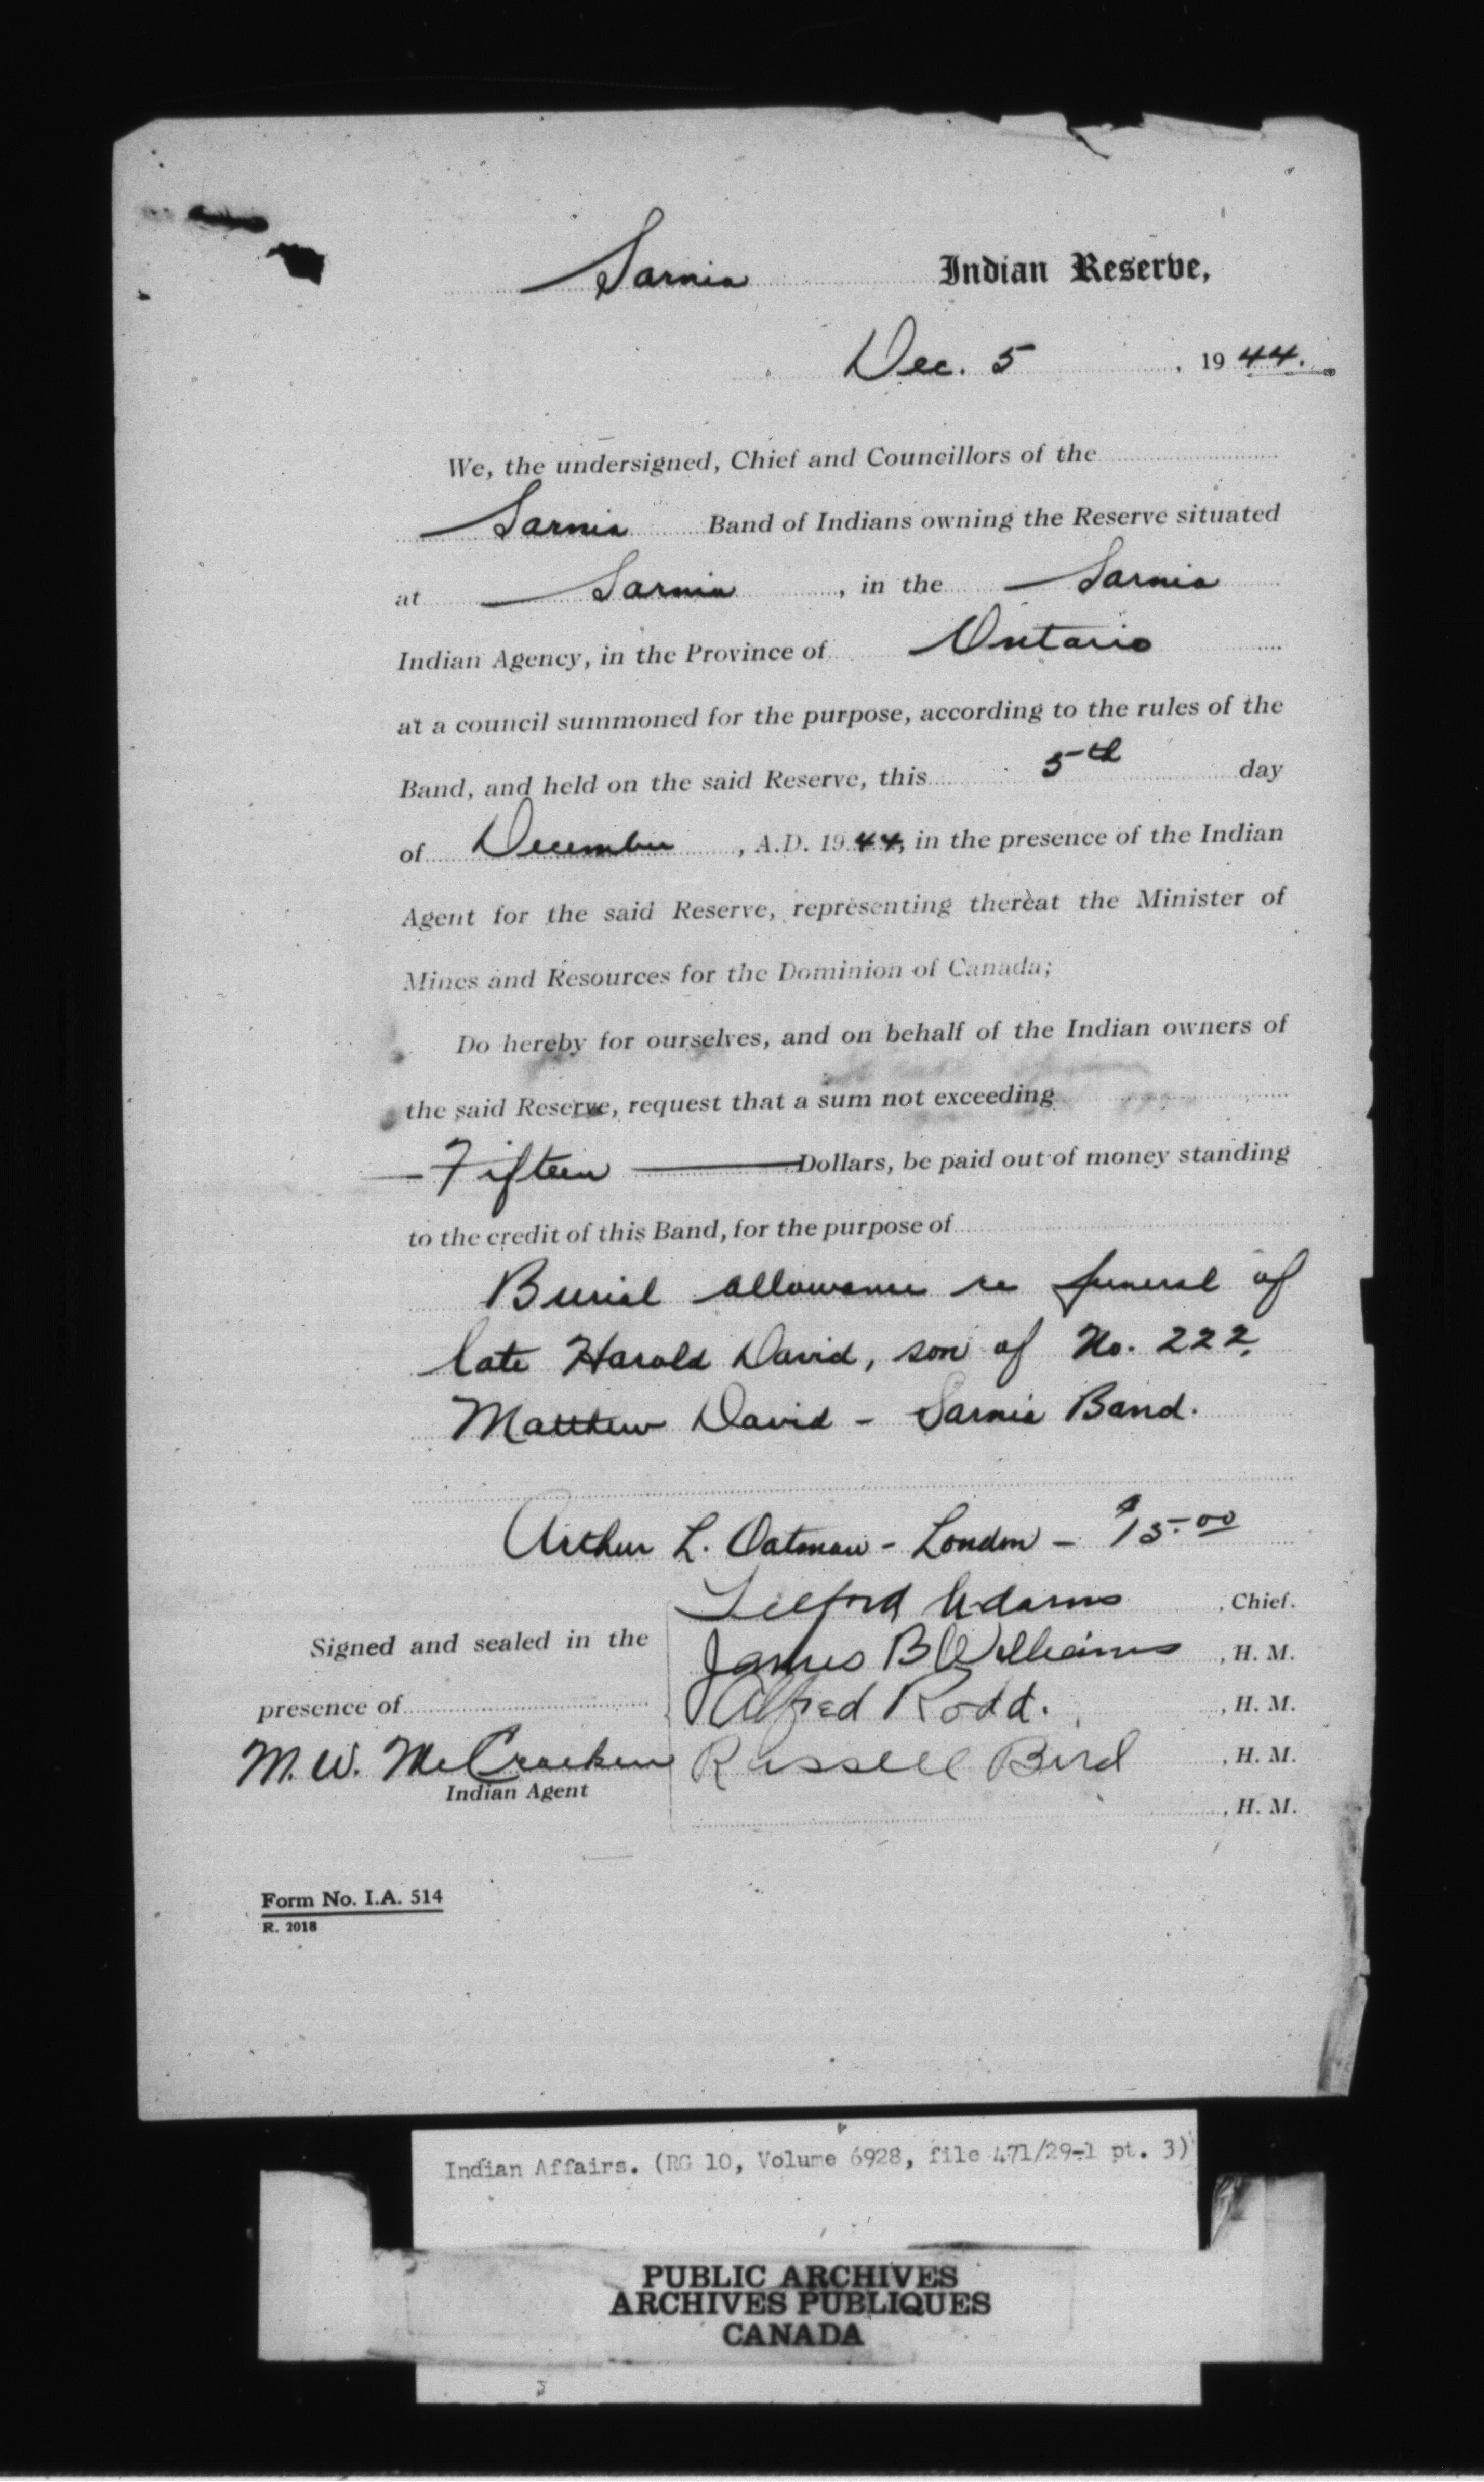 Sarnia Indian Reserve,
Dec. 5, 1944.
We, the undersigned, Chief and Councillors of the
Sarnia Band of Indians owning the Reserve situated
at Sarnia, in the Sarnia
Indian Agency, in the Province of Ontario
at a council summoned for the purpose, according to the rules of the
Band, and held on the said Reserve, this 5th day
of December, A.D. 1944, in the presence of the Indian
Agent for the said Reserve, representing thereat the Minister of
Mines and Resources for the Dominion of Canada;
Do hereby for ourselves, and on behalf of the Indian owners of
the said Reserve, request that a sum not exceeding
Fifteen Dollars, be paid out of money standing
to the credit of this Band, for the purpose of
Burial allowance re funeral of
late Harold David, son of No. 222,
Matthew David - Sarnia Band.
Arthur L. Oatman - London - $15.00
Telford Adams, Chief.
Signed and sealed in the
James B Williams, H. M.
presence of
Alfred Rodd., H. M.
M. W. McCracken
Russell Bird, H. M.
Indian Agent
, H. M.
Form No. I.A. 514
R. 2018
Indian Affairs. (RG 10, Volume 6928, file 471/29-1 pt. 3)
PUBLIC ARCHIVES
ARCHIVES PUBLIQUES
CANADA